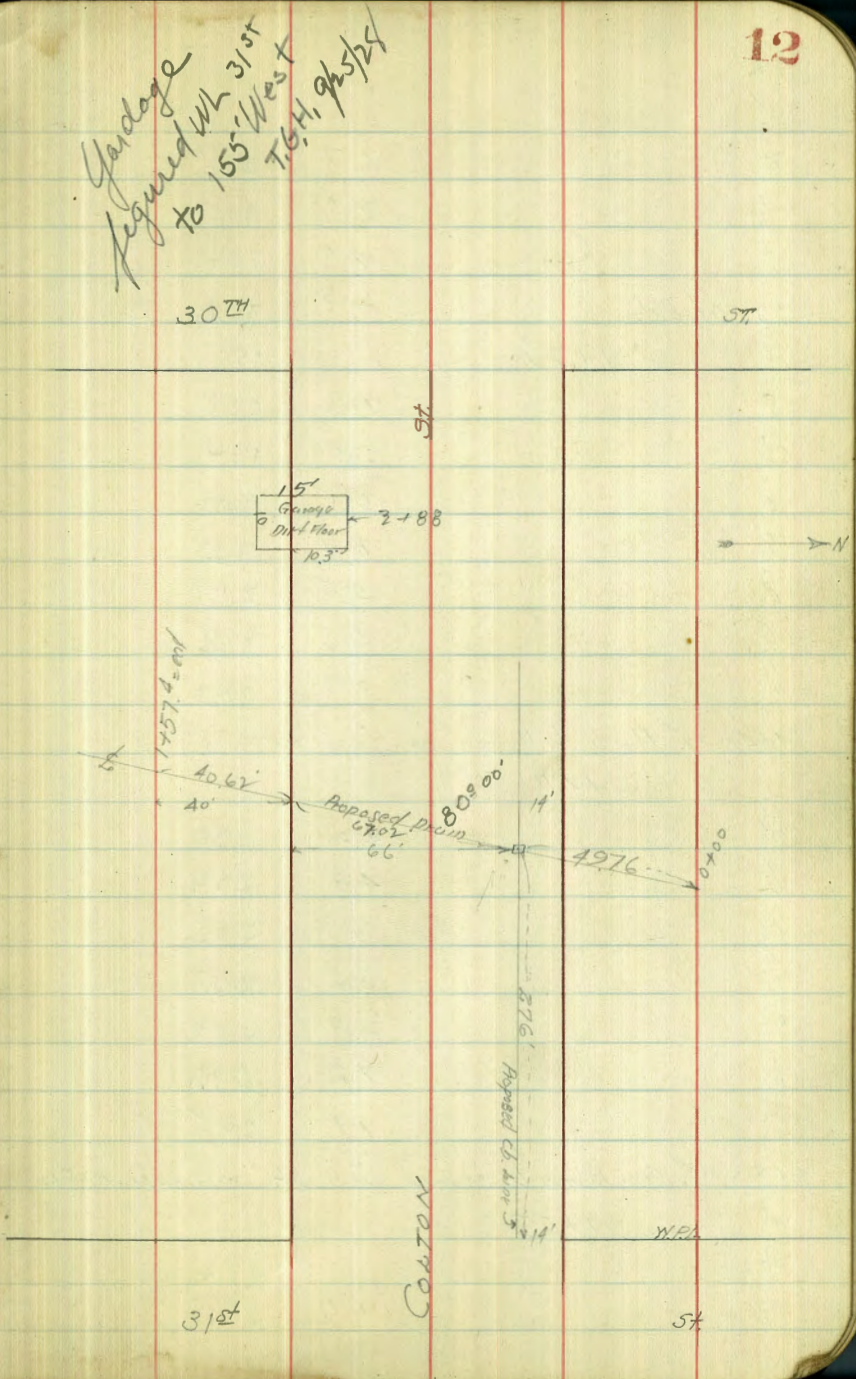 12
Yardage
figured WL 31st
to 155' West
T.G.H. 9/25/28
30TH
ST.
St
15'
Garage
Dirt Floor
10.3'
2+88
N
40.62'
40'
Proposed Drain
67.02
66'
80°00'
14'
49.76
0+00
276'
14'
COLTON
W.P.L.
31st
St.